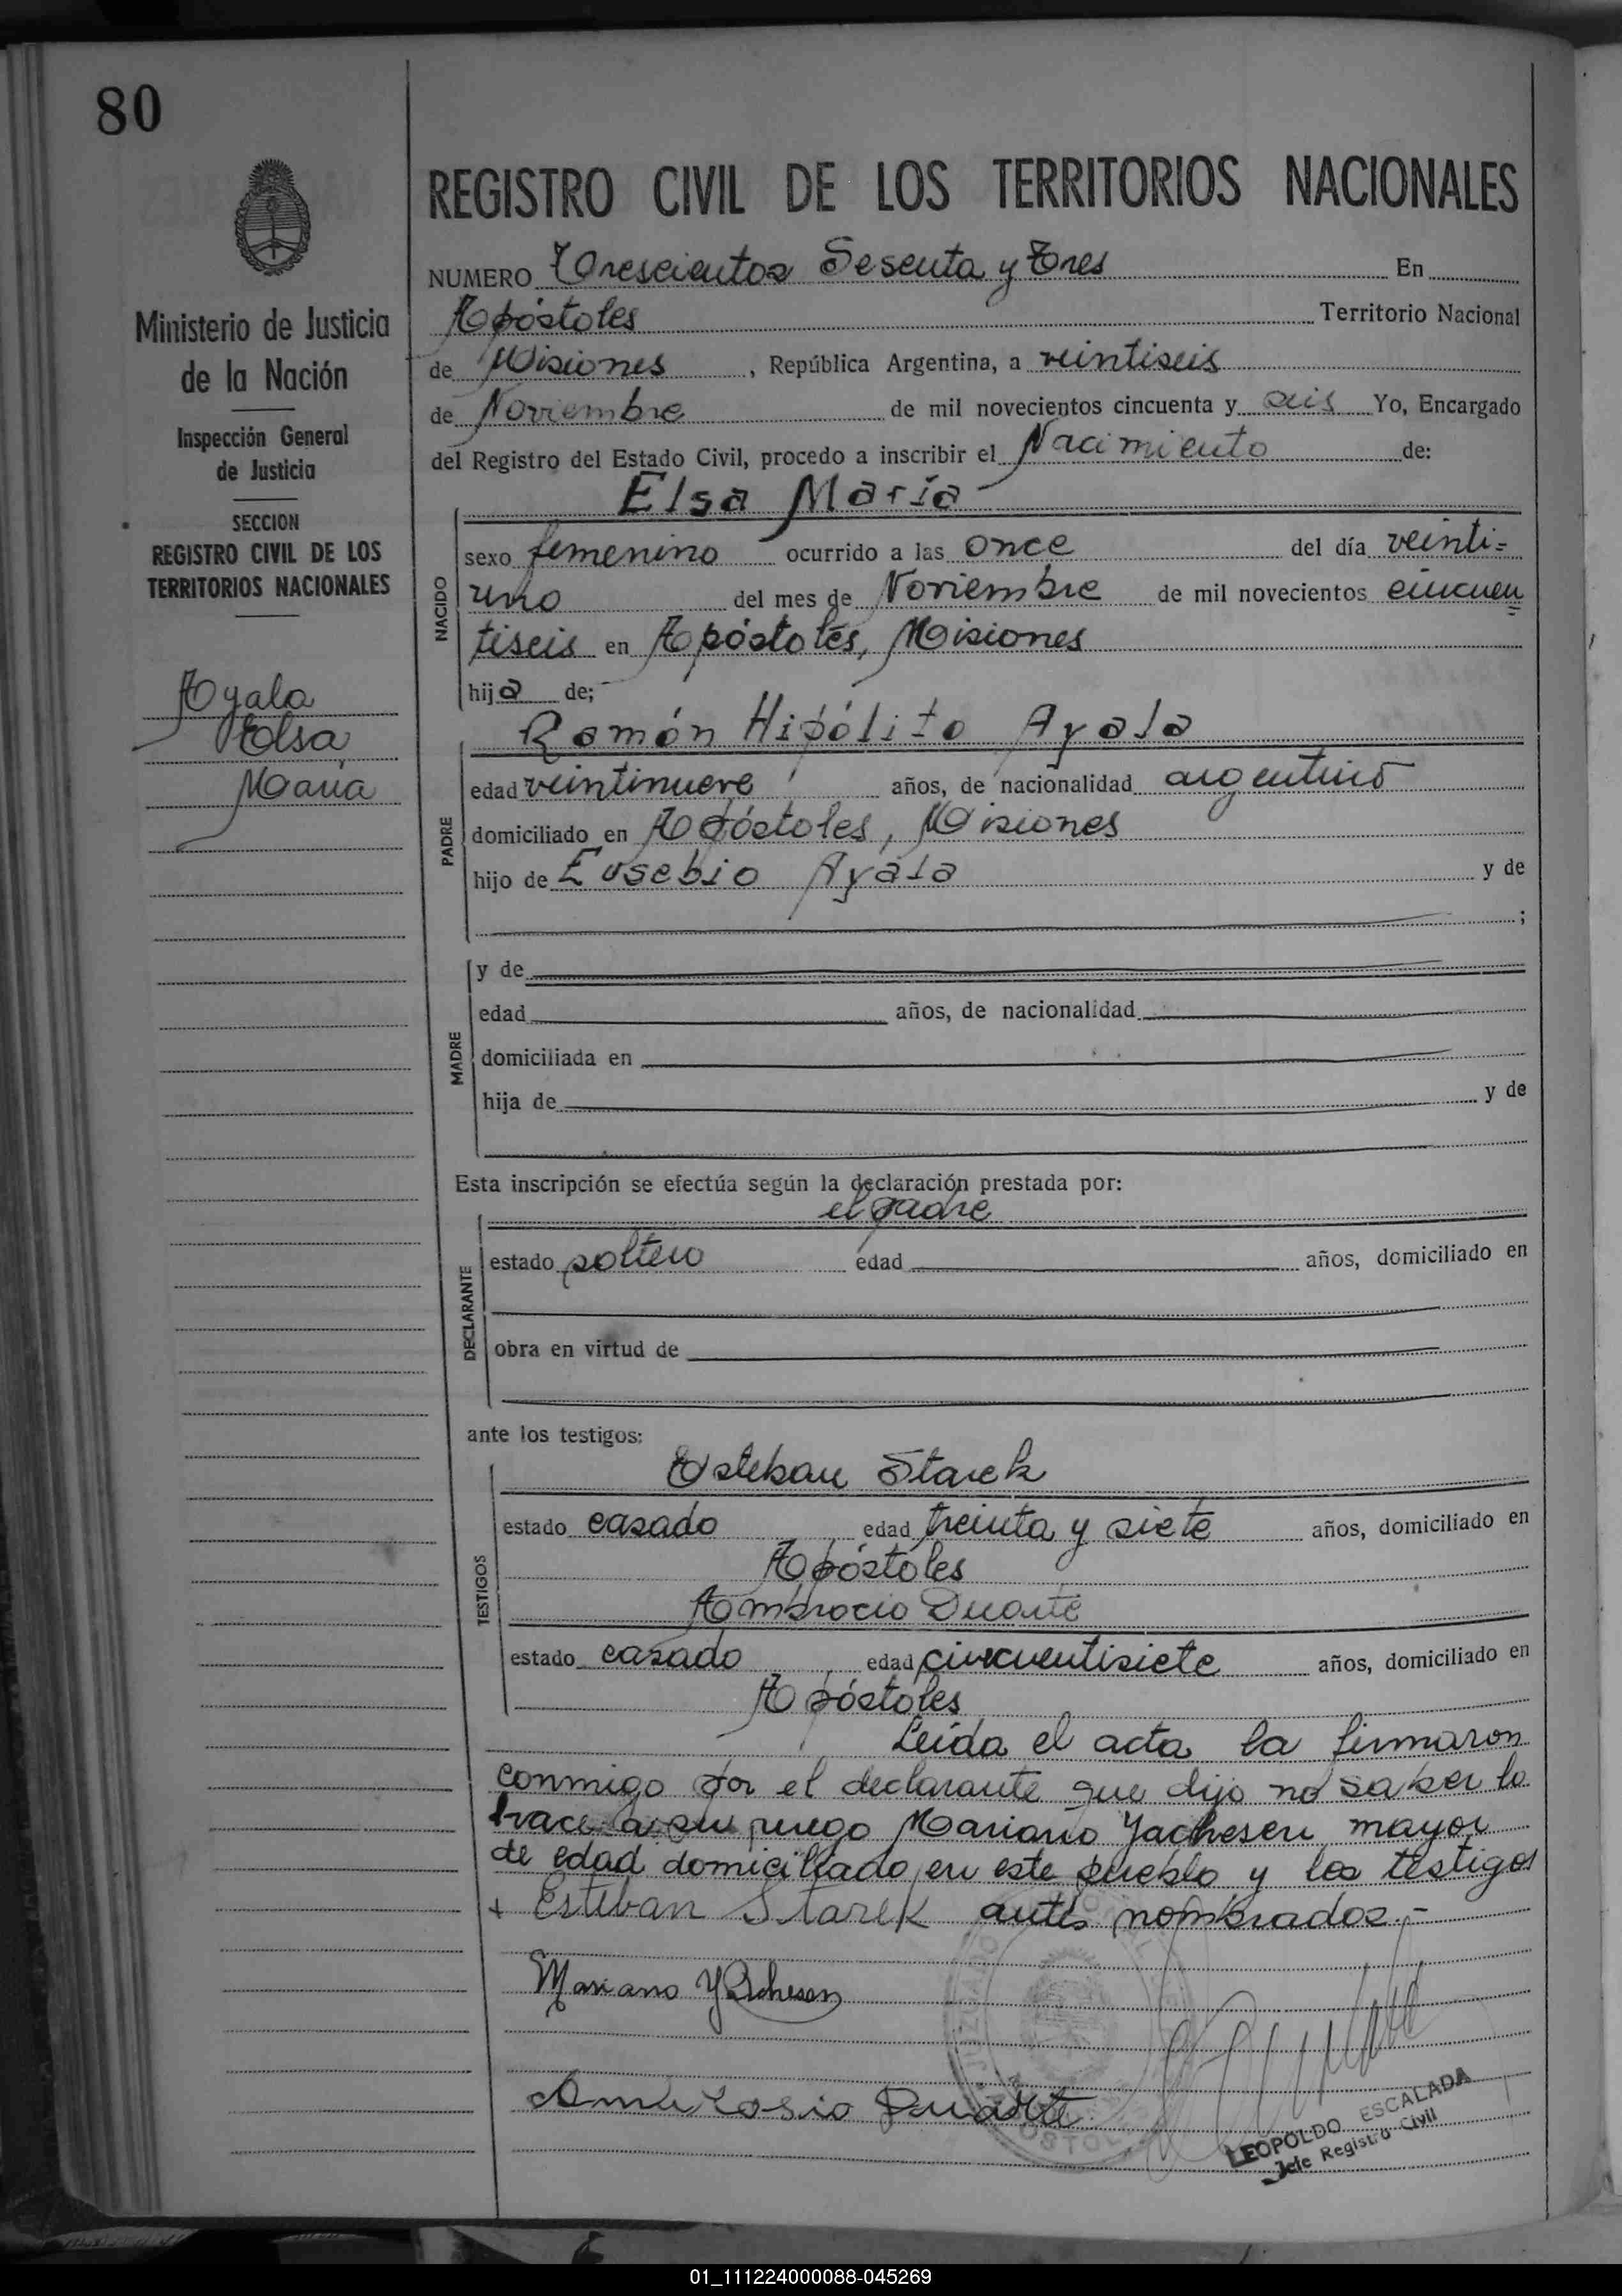 80
REGISTRO CIVIL DE LOS TERRITORIOS NACIONALES
NUMERO Trescientos Sesenta y Tres En
Apóstoles Territorio Nacional
de Misiones, República Argentina, a veintiseis
de Noviembre de mil novecientos cincuenta y seis Yo, Encargado
del Registro del Estado Civil, procedo a inscribir el Nacimiento de:
Ministerio de Justicia
de la Nación
Inspección General
de Justicia
SECCION
REGISTRO CIVIL DE LOS
TERRITORIOS NACIONALES
Ayala
Elsa
María
NACIDO
Elsa María
sexo femenino ocurrido a las once del día veinti=
uno del mes de Noviembre de mil novecientos cincuen=
tiseis en Apóstoles, Misiones
hija de;
PADRE
Ramón Hipólito Ayala
edad veintinueve años, de nacionalidad argentino
domiciliado en Apóstoles, Misiones
hijo de Eusebio Ayala y de
;
MADRE
y de
edad años, de nacionalidad
domiciliada en
hija de y de
Esta inscripción se efectúa según la declaración prestada por:
DECLARANTE
el padre
estado soltero edad años, domiciliado en
obra en virtud de
ante los testigos:
TESTIGOS
Esteban Starek
estado casado edad treinta y siete años, domiciliado en
Apóstoles
Ambrocio Duarte
estado casado edad cincuentisiete años, domiciliado en
Apóstoles
Leída el acta la firmaron
conmigo por el declarante que dijo no saber lo
hace a su ruego Mariano Yachesen mayor
de edad domiciliado en este pueblo y los testigos
+ Esteban Starek antes nombrados.-
Mariano Yachesen
Ambrosio Duarte
LEOPOLDO ESCALADA
Jefe Registro Civil
01_111224000088-045269